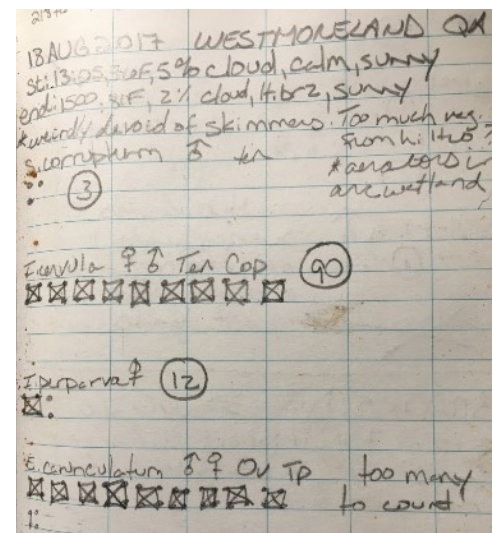 18AUG2017 WESTMORELAND QA
St: 13:05, F, 5% cloud, calm, sunny
end: 1500, 81F, 2% cloud, lt. brz, sunny
*weirdly devoid of skimmers. Too much veg.
S. corruptum ♂ ten from hi H2O?
3 *aerators in
arc wetland
I. cervula ♀ ♂ Ten Cop 90
I. perparva ♀ 12
E. carunculatum ♂ ♀ Ov TP too many
to count